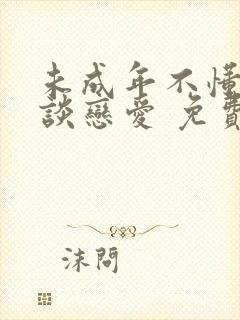 未成年不懂
談戀愛 免費
沫問